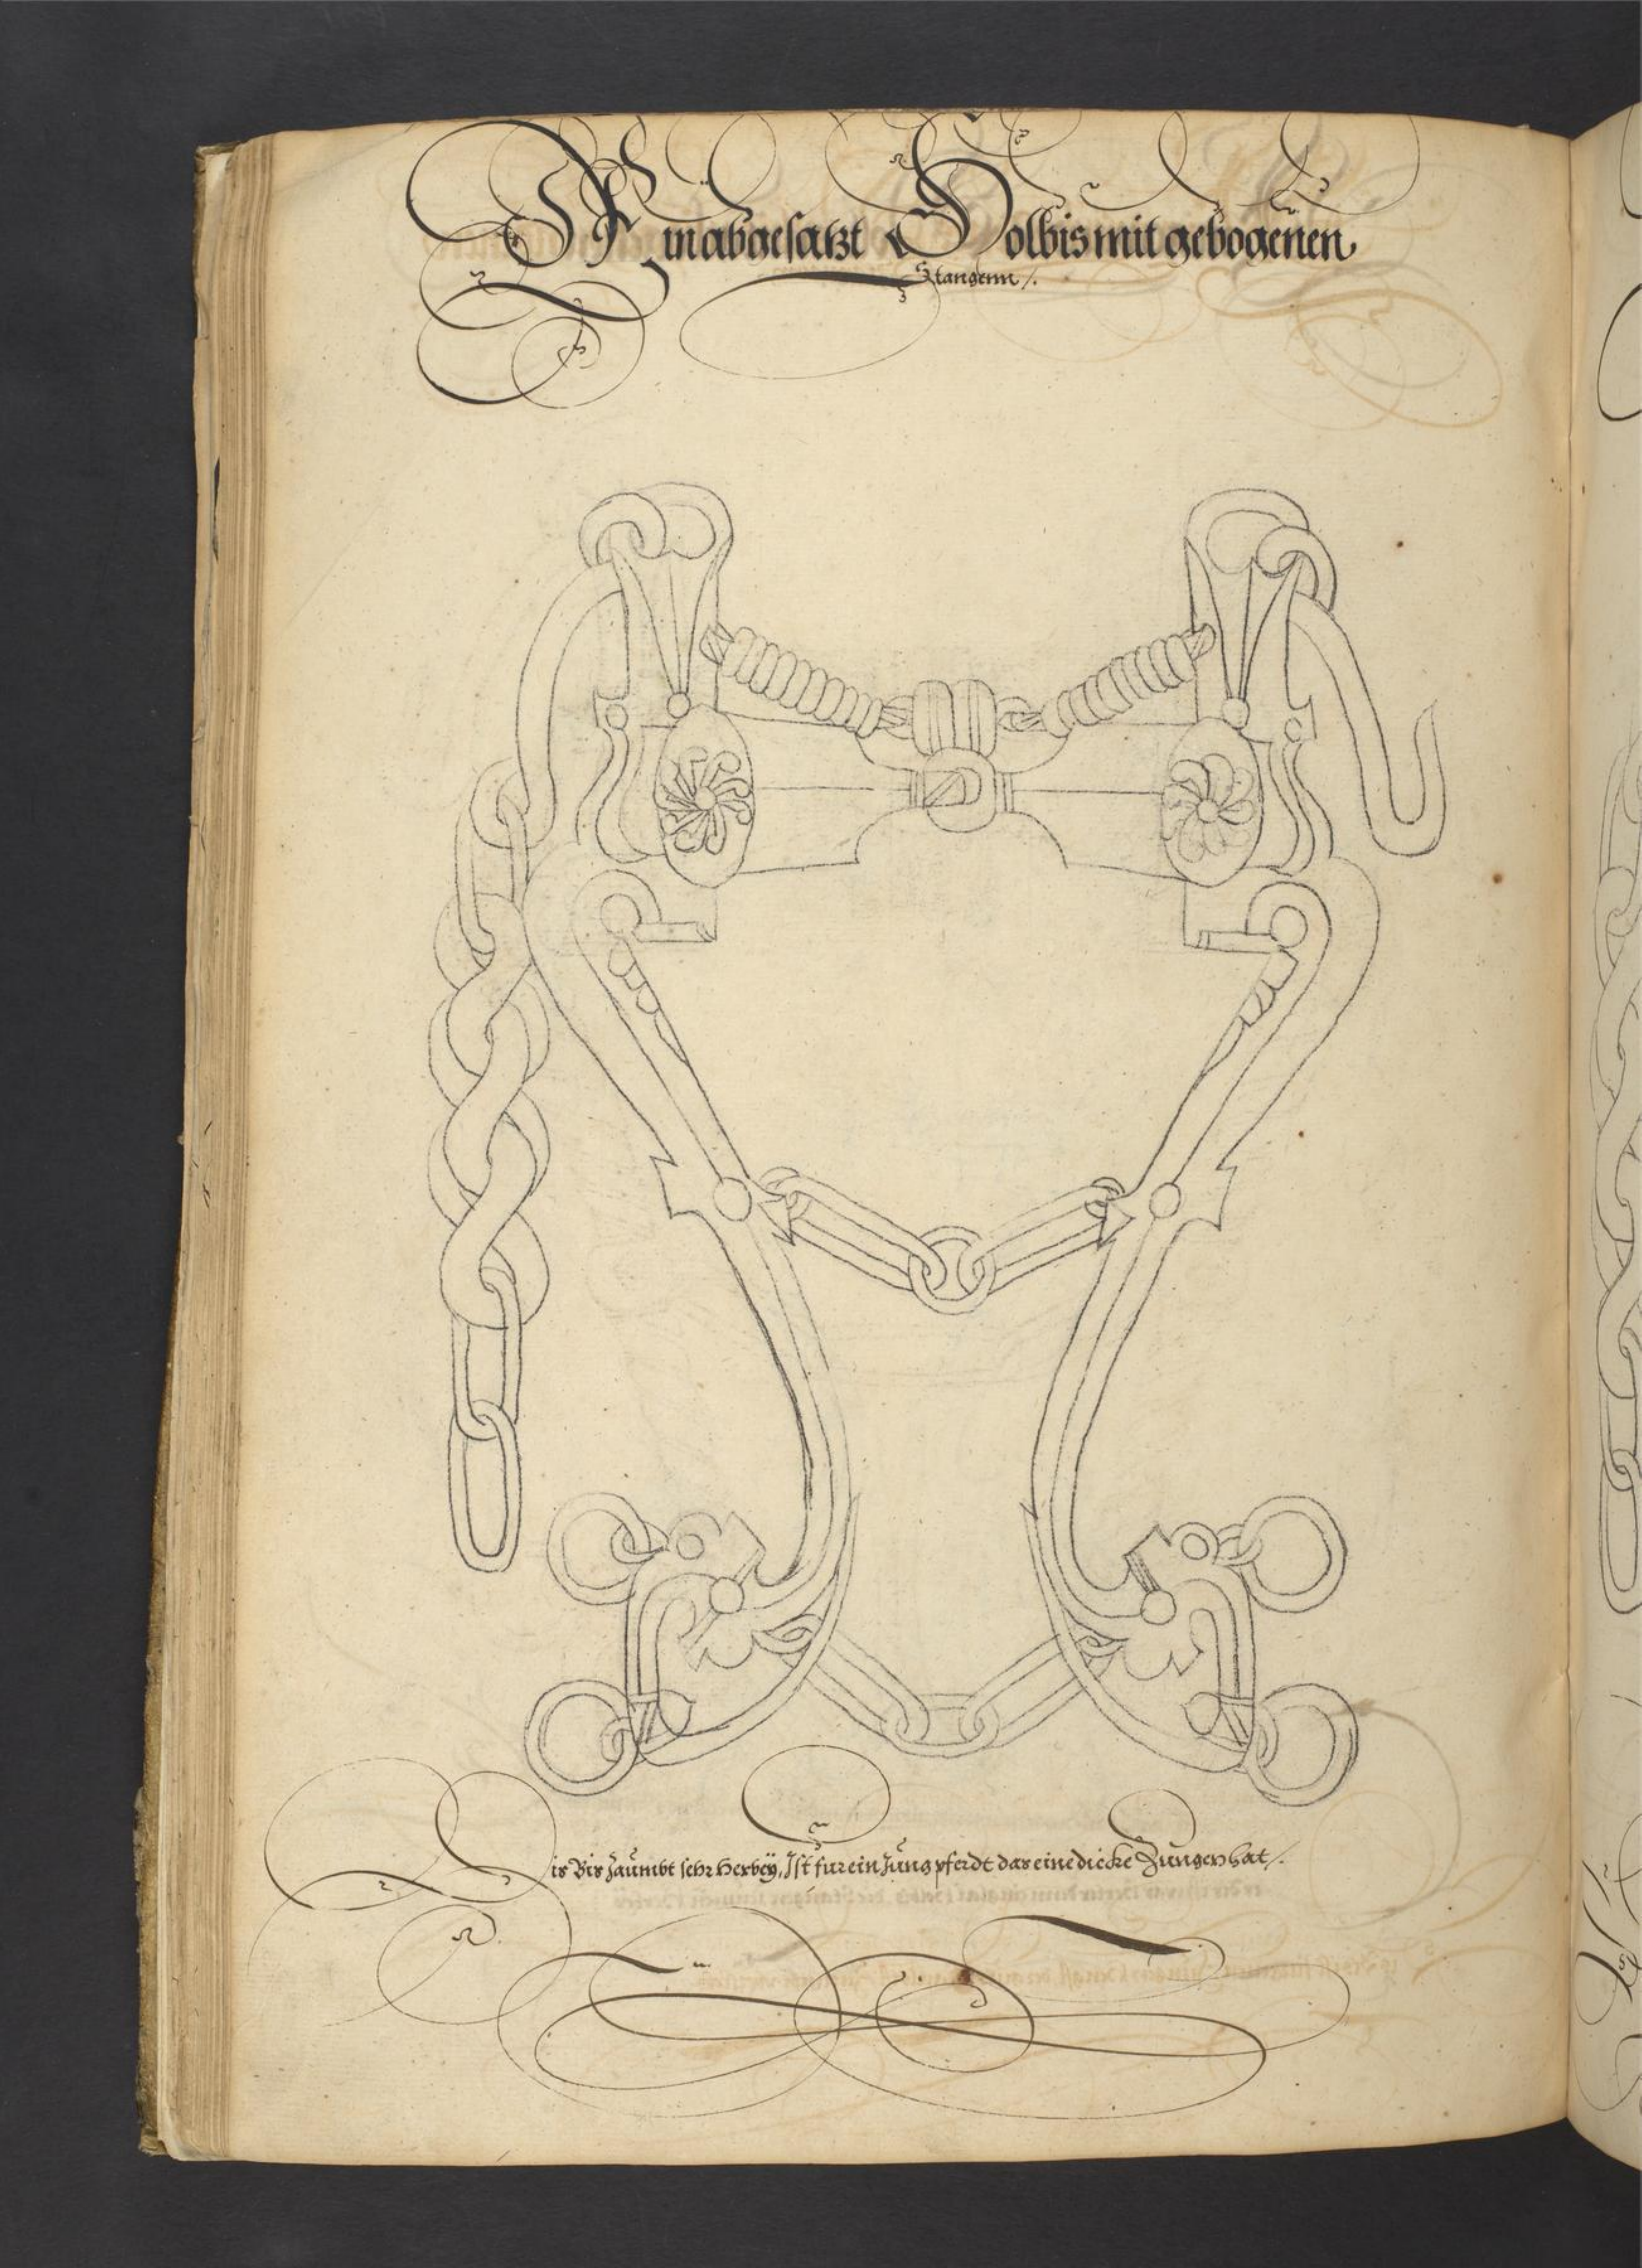 Ein abgesatzt Holbis mit gebogenen
Stangenn /.
Dis Bis Zaŭmbt sehr herbeÿ, Ist fur ein Jŭng pferdt das eine dicke Zŭngen hat /.